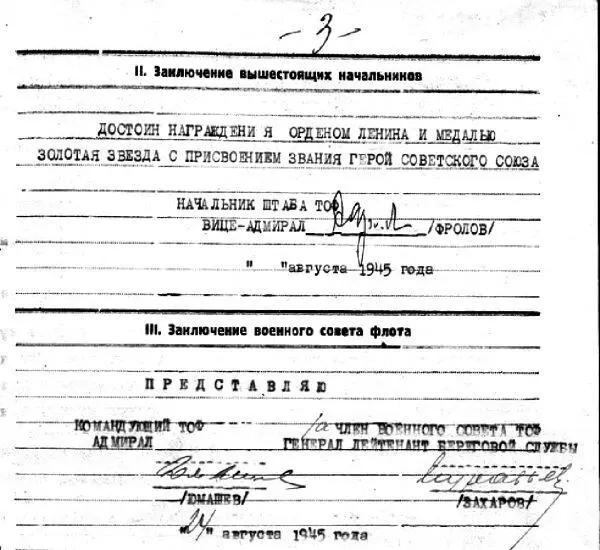 - 3 -
II. Заключение вышестоящих начальников
ДОСТОИН НАГРАЖДЕНИ Я ОРДЕНОМ ЛЕНИНА И МЕДАЛЬЮ
ЗОЛОТАЯ ЗВЕЗДА С ПРИСВОЕНИЕМ ЗВАНИЯ ГЕРОЙ СОВЕТСКОГО СОЮЗА
НАЧАЛЬНИК ШТАБА ТОФ
ВИЦЕ-АДМИРАЛ /ФРОЛОВ/
" "августа 1945 года
III. Заключение военного совета флота
ПРЕДСТАВЛЯЮ
КОМАНДУЮЩИЙ ТОФ ЧЛЕН ВОЕННОГО СОВЕТА ТОФ
АДМИРАЛ ГЕНЕРАЛ ЛЕЙТЕНАНТ БЕРЕГОВОЙ СЛУЖБЫ
/ЮМАШЕВ/ /ЗАХАРОВ/
"24" августа 1945 года